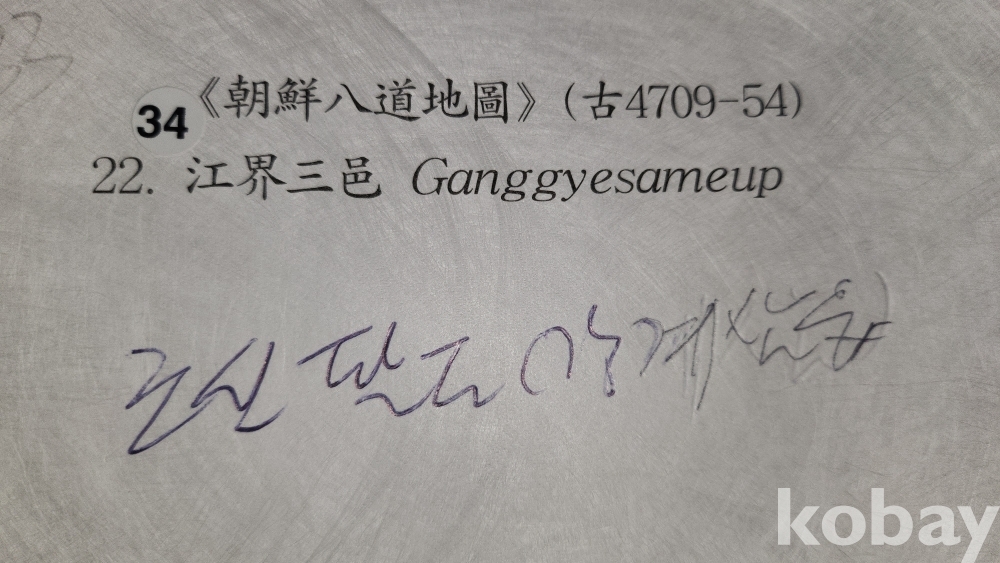 《朝鮮八道地圖》(古4709-54)
34
22. 江界三邑 Ganggyesameup
조선팔도 (강계삼읍)
kobay